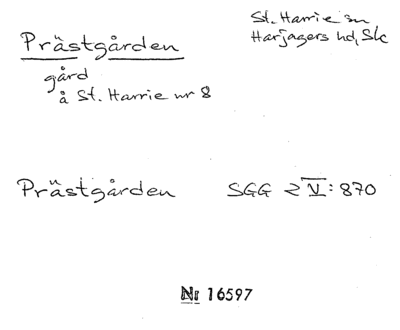 St. Harrie sn
Harjagers hd, Sk
Prästgården
gård
å St. Harrie nr 8
Prästgården SGG 2 V: 870
Nr 16597